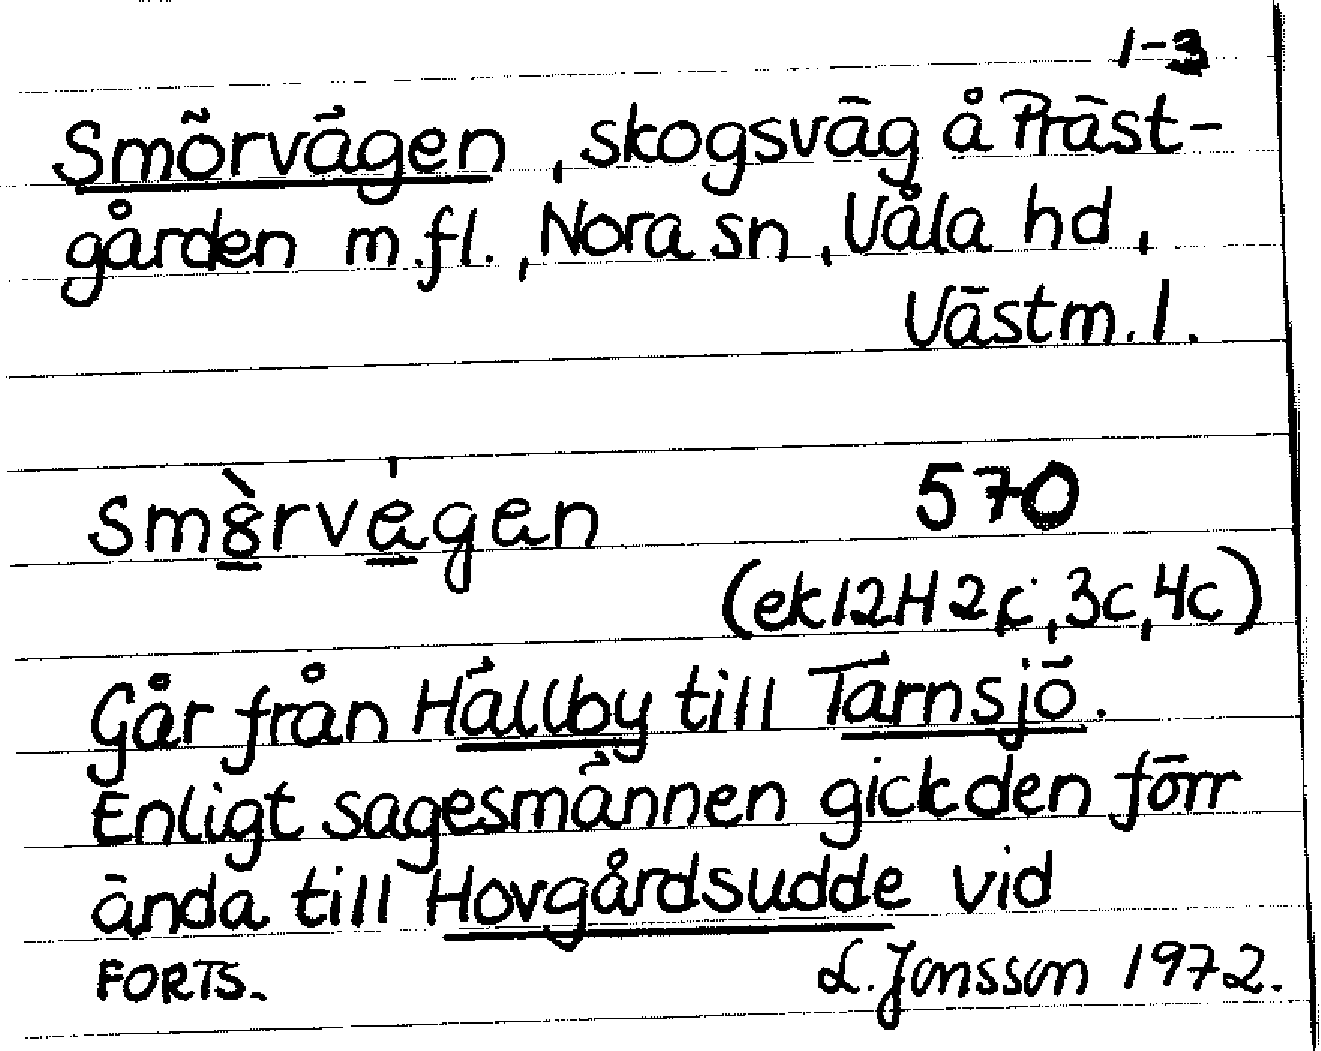 1-3
Smörvägen, skogsväg å Präst-
gården m.fl., Nora sn, Våla hd,
Västm. l.
smö̀rvägen 570
(ek 12H 2c, 3c, 4c)
Går från Hällby till Tärnsjö.
Enligt sagesmännen gick den förr
ända till Hovgårdsudde vid
FORTS. L. Jonsson 1972.